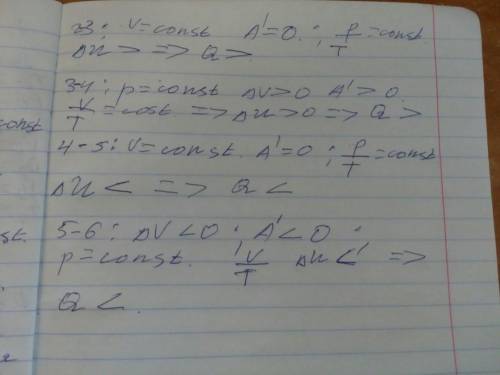 23: V=const A'=0. ; P/T=const.
ΔU > => Q >.
3-4: p=const ΔV>0 A'>0.
V/T=cost. => ΔU>0 => Q >
const
4-5: V=const. A'=0 ; P/T=const
ΔU < => Q <
st. 5-6: ΔV<0 ; A'<0 ;
p=const. V/T ΔU < =>
Q <.